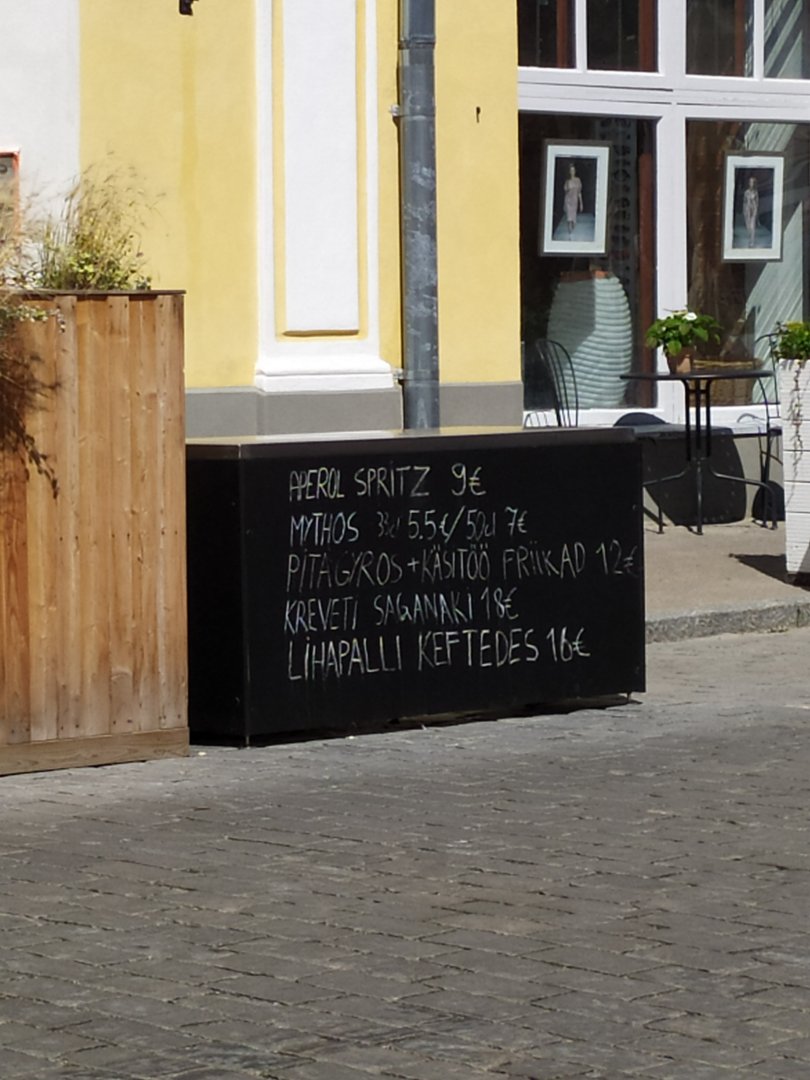 APEROL SPRITZ 9€
MYTHOS 33cl 5.5€/50cl 7€
PITAGYROS+KÄSITÖÖ FRIIKAD 12€
KREVETI SAGANAKI 18€
LIHAPALLI KEFTEDES 16€